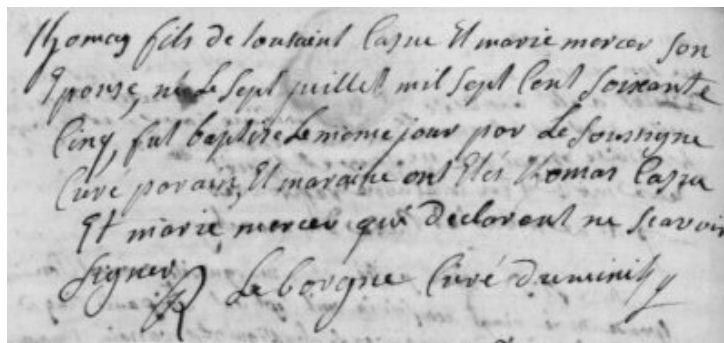 Thomas fils de tousaint Cazuc Et marie mercer son
Epouse, né Le sept juillet mil sept Cent soixante
Cinq, fut baptisé Le meme jour par Le soussigne
Curé parain, Et maraine ont Etés thomas Cazuc
Et marie mercer qui declarent ne scavoir
signer
Le borgne Curé Duminihy